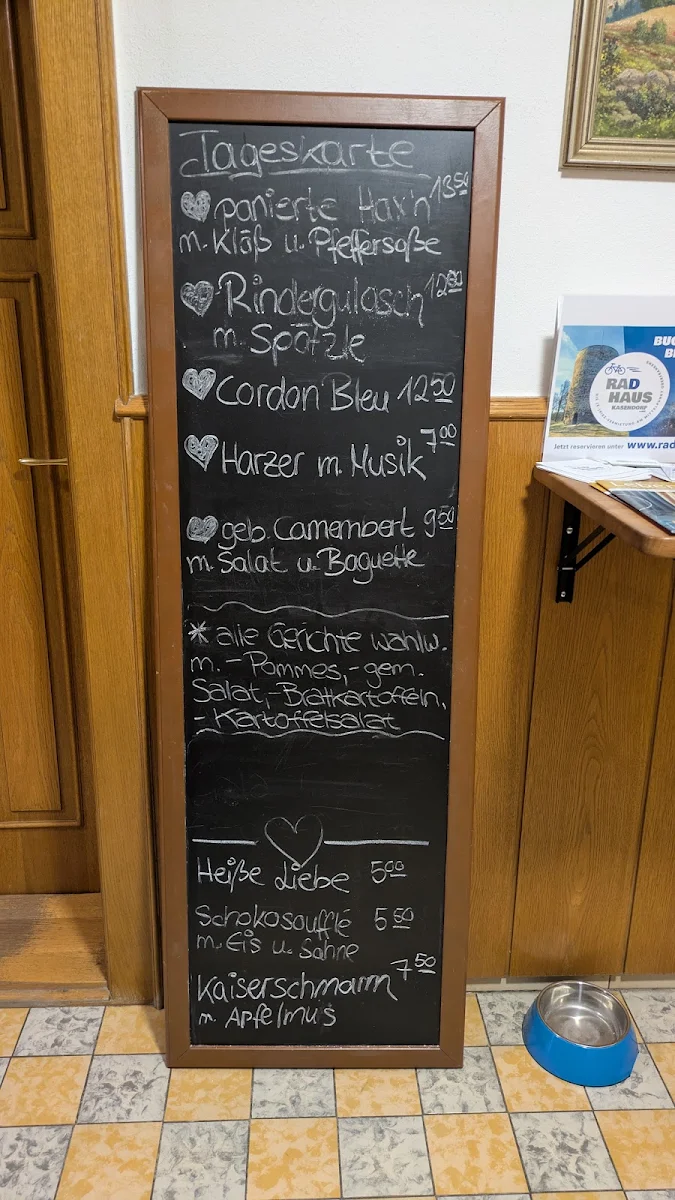 Tageskarte
panierte Hax'n 13.50
m. Klöß u. Pfeffersoße
Rindergulasch 12.00
m. Spätzle
Cordon Bleu 12.50
Harzer m. Musik 7.00
geb. Camembert 9.50
m. Salat u. Baguette
* alle Gerichte wahlw.
m. - Pommes, - gem.
Salat, - Bratkartoffeln,
- Kartoffelsalat
Heiße Liebe 5.00
Schokosoufflé 5.50
m. Eis u. Sahne
Kaiserschmarrn 7.50
m. Apfelmus
RAD
HAUS
KASENDORF
Jetzt reservieren unter www.rad